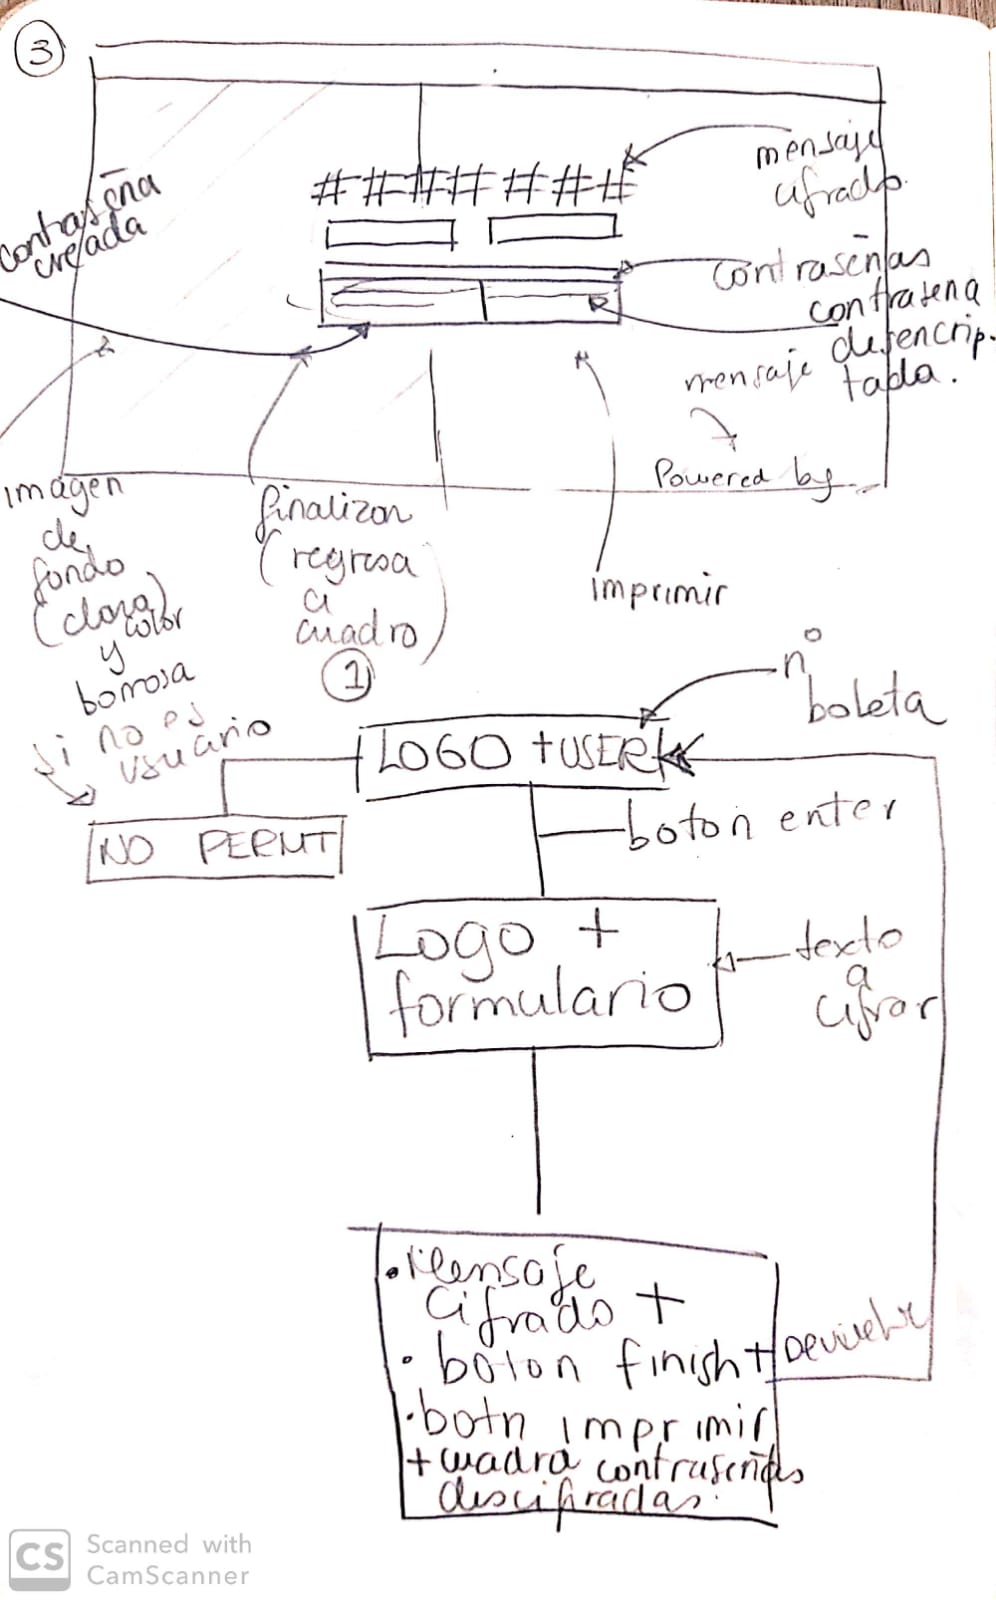 3
#######
mensaje
cifrado.
contraseña
creada
contraseñas
contrasena
desencrip-
tada.
mensaje
Powered by
imagen
de
fondo
(clara)
y color
borrosa
finalizar
(regresa
a
cuadro)
1
imprimir
nº
boleta
si no es
usuario
LOGO + USER
NO PERMIT
boton enter
Logo +
formulario
texto
a
cifrar
• Mensaje
cifrado +
• boton finish +
Devuelve
• botn imprimir
+ cuadra contraseñas
descifradas.
CS
Scanned with
CamScanner